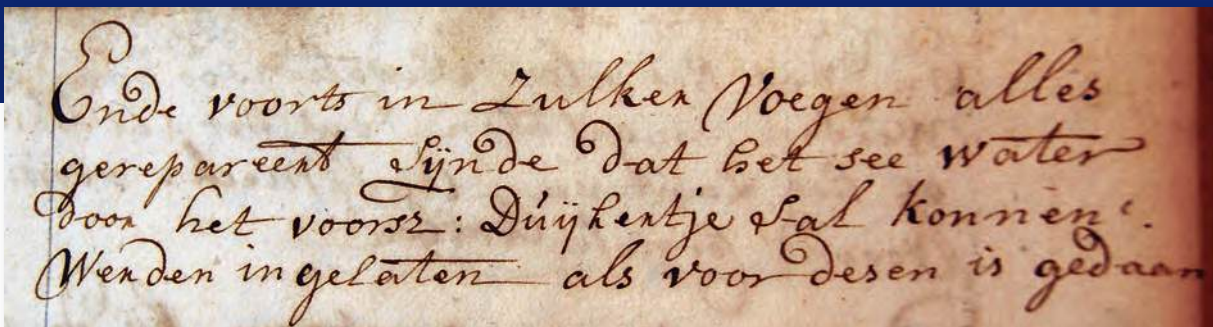 Ende voorts in Zulken Voegen alles
gerepareert Sijnde dat het see water
door het voorsz: Duijkertje Sal konnen
Werden ingelaten als voor desen is gedaan